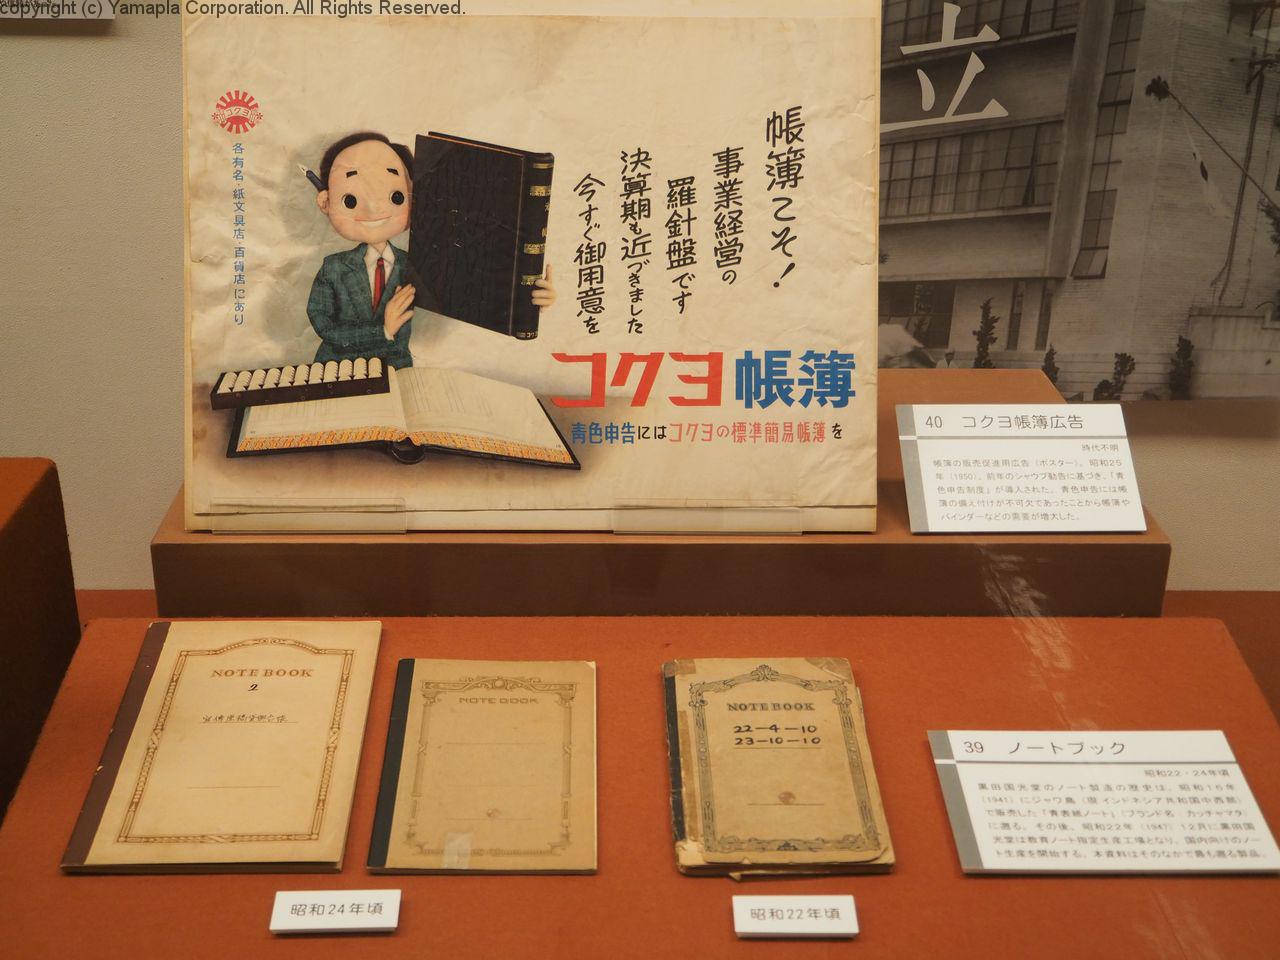 copyright (c) Yamapla Corporation. All Rights Reserved.
立
コクヨ
各有名・紙文具店・百貨店にあり
帳簿こそ!
事業経営の
羅針盤です
決算期も近づきました
今すぐ御用意を
コクヨ帳簿
青色申告にはコクヨの標準簡易帳簿を
40 コクヨ帳簿広告
時代不明
帳簿の販売促進用広告(ポスター)。昭和25
年(1950)、前年のシャウプ勧告に基づき、「青
色申告制度」が導入された。青色申告には帳
簿の備え付けが不可欠であったことから帳簿や
バインダーなどの需要が増大した。
NOTE BOOK
2
NOTE BOOK
NOTE BOOK
22-4-10
23-10-10
39 ノートブック
昭和22・24年頃
黒田国光堂のノート製造の歴史は、昭和16年
(1941)にジャワ島(現インドネシア共和国中西部)
で販売した「青表紙ノート」(ブランド名:カッチャマタ)
に遡る。その後、昭和22年(1947)12月に黒田国
光堂は教育ノート指定生産工場となり、国内向けのノー
ト生産を開始する。本資料はそのなかで最も遡る製品。
昭和24年頃
昭和22年頃